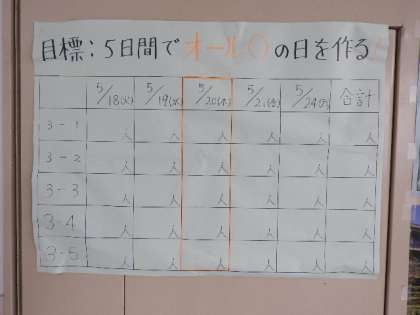 目標：5日間でオール○の日を作る
5/18(火) 5/19(水) 5/20(木) 5/21(金) 5/24(月) 合計
3-1 人 人 人 人 人 人
3-2 人 人 人 人 人 人
3-3 人 人 人 人 人 人
3-4 人 人 人 人 人 人
3-5 人 人 人 人 人 人